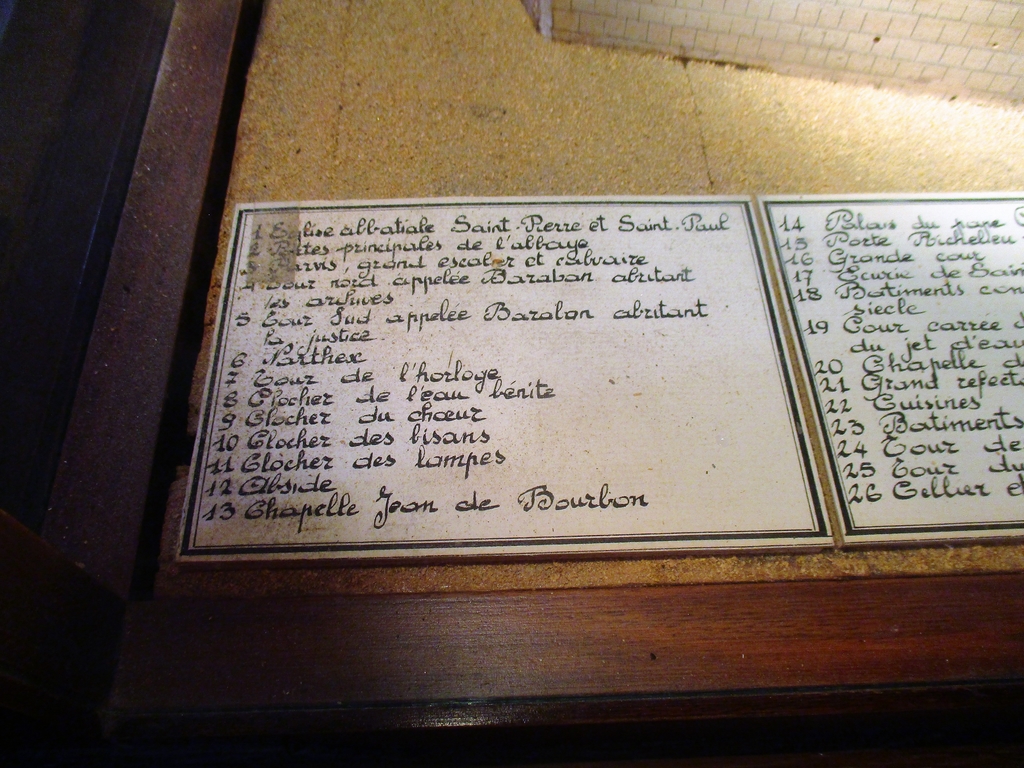 1 Eglise abbatiale Saint-Pierre et Saint-Paul
2 Portes principales de l'abbaye
3 Parvis, grand escalier et calvaire
4 Tour nord appelée Baraban abritant
les archives
5 Tour Sud appelée Baraban abritant
la justice
6 Narthex
7 Tour de l'horloge
8 Clocher de l'eau bénite
9 Clocher du chœur
10 Clocher des bisans
11 Clocher des lampes
12 Abside
13 Chapelle Jean de Bourbon
14 Palais du pape
15 Porte Richelieu
16 Grande cour
17 Ecurie de
18 Batiments
siecle
19 Cour carrée
du jet d'eau
20 Chapelle
21 Grand
22 Cuisines
23 Batiments
24 Tour de
25 Tour du
26 Cellier et